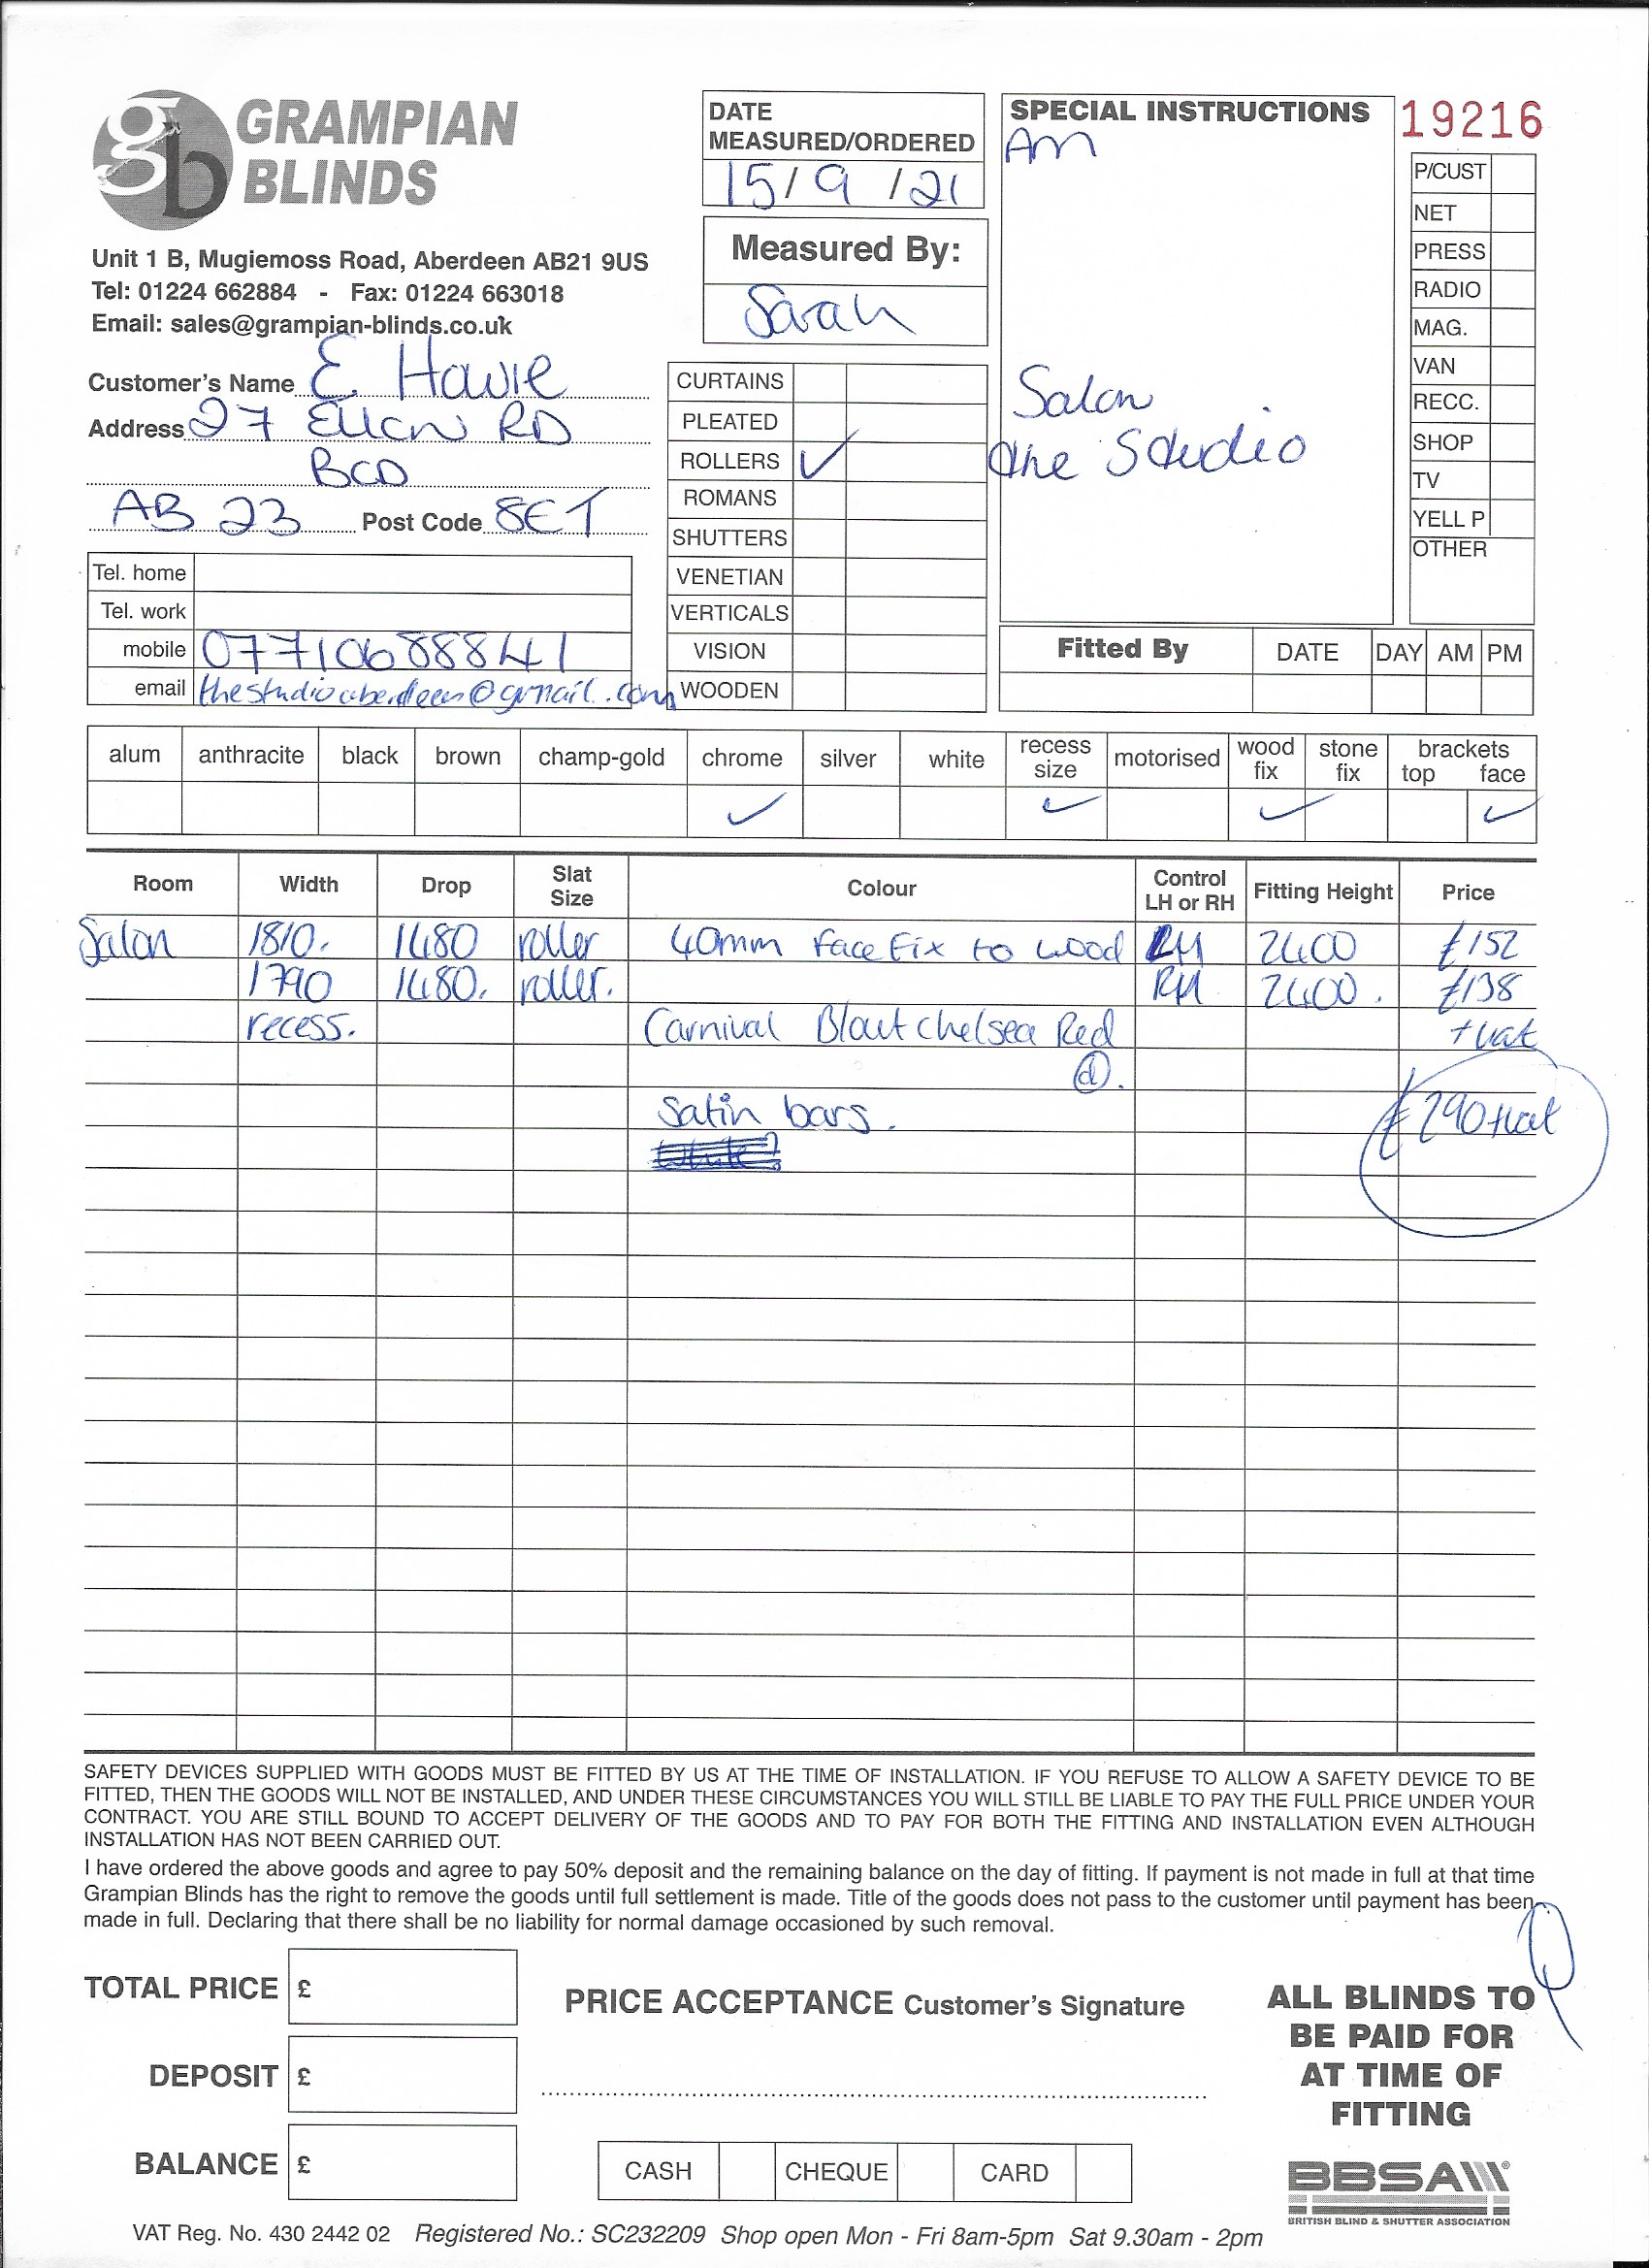 gb GRAMPIAN BLINDS
Unit 1 B, Mugiemoss Road, Aberdeen AB21 9US
Tel: 01224 662884 - Fax: 01224 663018
Email: sales@grampian-blinds.co.uk
Customer's Name E. Howie
Address 27 Ellon RD
BOD
AB 23 Post Code 8ET
Tel. home
Tel. work
mobile 07710688841
email thestudioaberdeen@gmail.com
DATE MEASURED/ORDERED
15/9/21
Measured By:
Sarah
CURTAINS
PLEATED
ROLLERS ✓
ROMANS
SHUTTERS
VENETIAN
VERTICALS
VISION
WOODEN
SPECIAL INSTRUCTIONS
Am
Salon
the Studio
Fitted By DATE DAY AM PM
19216
P/CUST
NET
PRESS
RADIO
MAG.
VAN
RECC.
SHOP
TV
YELL P
OTHER
alum anthracite black brown champ-gold chrome silver white recess size motorised wood fix stone fix brackets top face
✓ ✓ ✓ ✓
Room Width Drop Slat Size Colour Control LH or RH Fitting Height Price
Salon 1810. 1480 roller 40mm face fix to wood LH 2400 £152
1790 1480. roller. RH 2400. £138
recess. Carnival Blout Chelsea Red + vat
d.
Satin bars. £290 + vat
SAFETY DEVICES SUPPLIED WITH GOODS MUST BE FITTED BY US AT THE TIME OF INSTALLATION. IF YOU REFUSE TO ALLOW A SAFETY DEVICE TO BE
FITTED, THEN THE GOODS WILL NOT BE INSTALLED, AND UNDER THESE CIRCUMSTANCES YOU WILL STILL BE LIABLE TO PAY THE FULL PRICE UNDER YOUR
CONTRACT. YOU ARE STILL BOUND TO ACCEPT DELIVERY OF THE GOODS AND TO PAY FOR BOTH THE FITTING AND INSTALLATION EVEN ALTHOUGH
INSTALLATION HAS NOT BEEN CARRIED OUT.
I have ordered the above goods and agree to pay 50% deposit and the remaining balance on the day of fitting. If payment is not made in full at that time
Grampian Blinds has the right to remove the goods until full settlement is made. Title of the goods does not pass to the customer until payment has been
made in full. Declaring that there shall be no liability for normal damage occasioned by such removal.
TOTAL PRICE £
DEPOSIT £
BALANCE £
PRICE ACCEPTANCE Customer's Signature
CASH CHEQUE CARD
ALL BLINDS TO
BE PAID FOR
AT TIME OF
FITTING
BBSA
BRITISH BLIND & SHUTTER ASSOCIATION
VAT Reg. No. 430 2442 02 Registered No.: SC232209 Shop open Mon - Fri 8am-5pm Sat 9.30am - 2pm